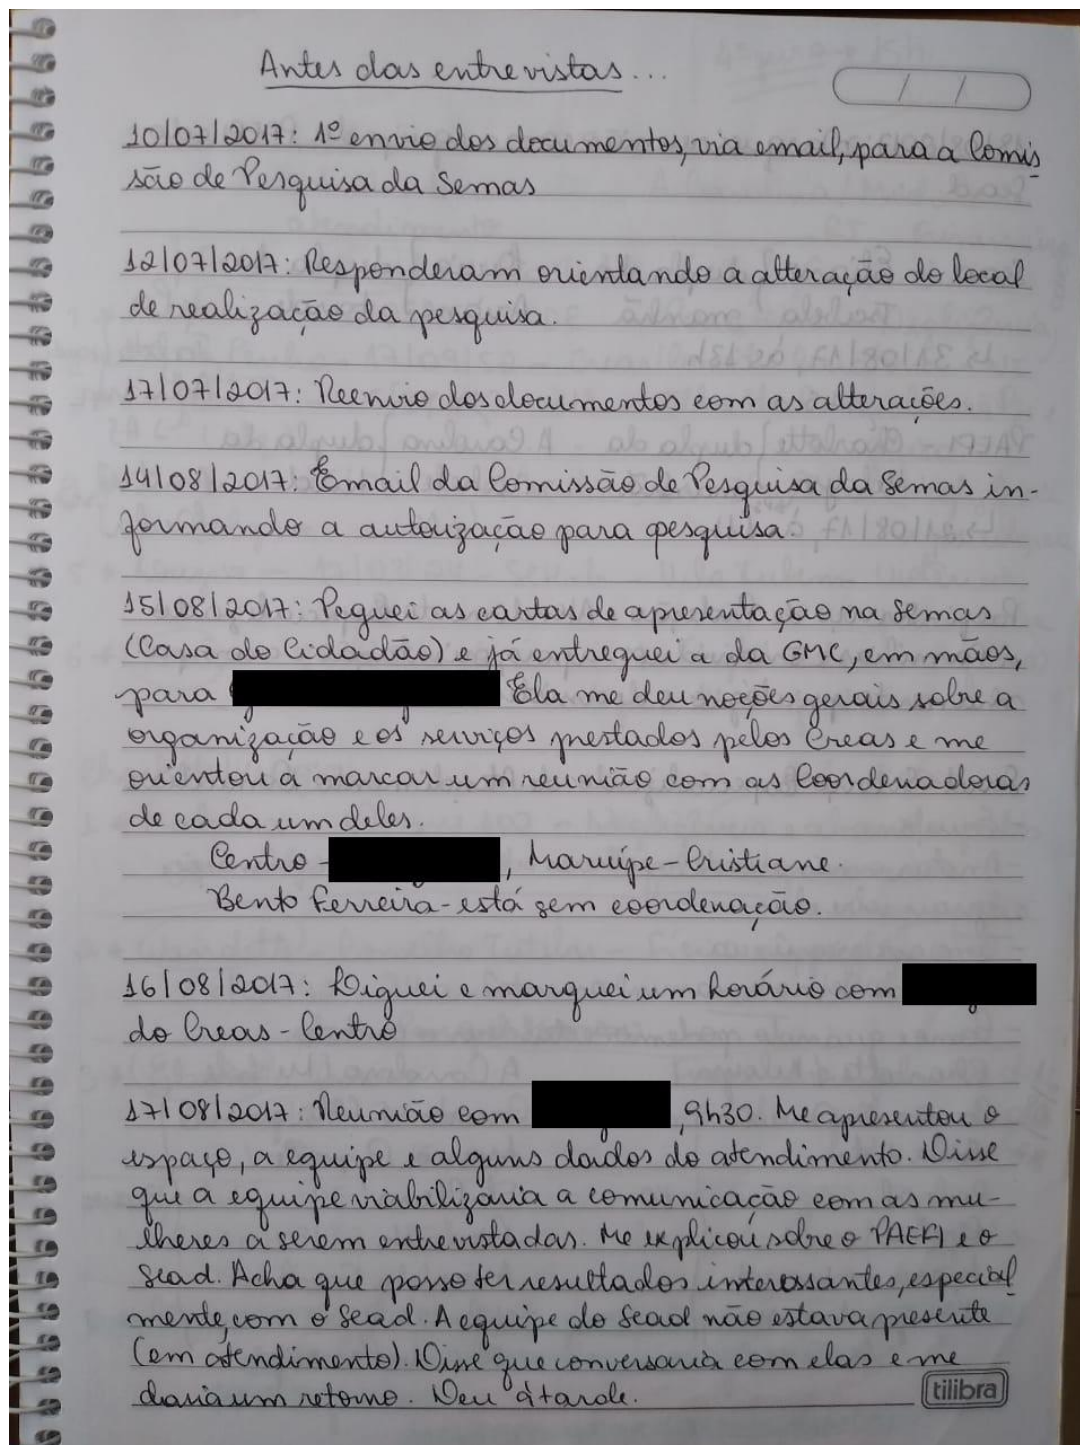 Antes das entrevistas...
/ /
10/07/2017: 1º envio dos documentos, via email, para a Comis
são de Pesquisa da Semas
12/07/2017: Responderam orientando a alteração do local
de realização da pesquisa.
17/07/2017: Reenvio dos documentos com as alterações.
14/08/2017: Email da Comissão de Pesquisa da Semas in-
formando a autorização para pesquisa.
15/08/2017: Peguei as cartas de apresentação na Semas
(Casa do Cidadão) e já entreguei a da GMC, em mãos,
para Ela me deu noções gerais sobre a
organização e os serviços prestados pelos Creas e me
orientou a marcar um reunião com as Coordenadoras
de cada um deles.
Centro - , Maruípe - Cristiane.
Bento Ferreira - está sem coordenação.
16/08/2017: Liguei e marquei um horário com
do Creas - Centro
17/08/2017: Reunião com , 9h30. Me apresentou o
espaço, a equipe e alguns dados do atendimento. Disse
que a equipe viabilizaria a comunicação com as mu-
lheres a serem entrevistadas. Me explicou sobre o PAEFI e o
Sead. Acha que posso ter resultados interessantes, especial
mente, com o Sead. A equipe do Sead não estava presente
(em atendimento). Disse que conversaria com elas e me
daria um retorno. Deu à tarde.
tilibra